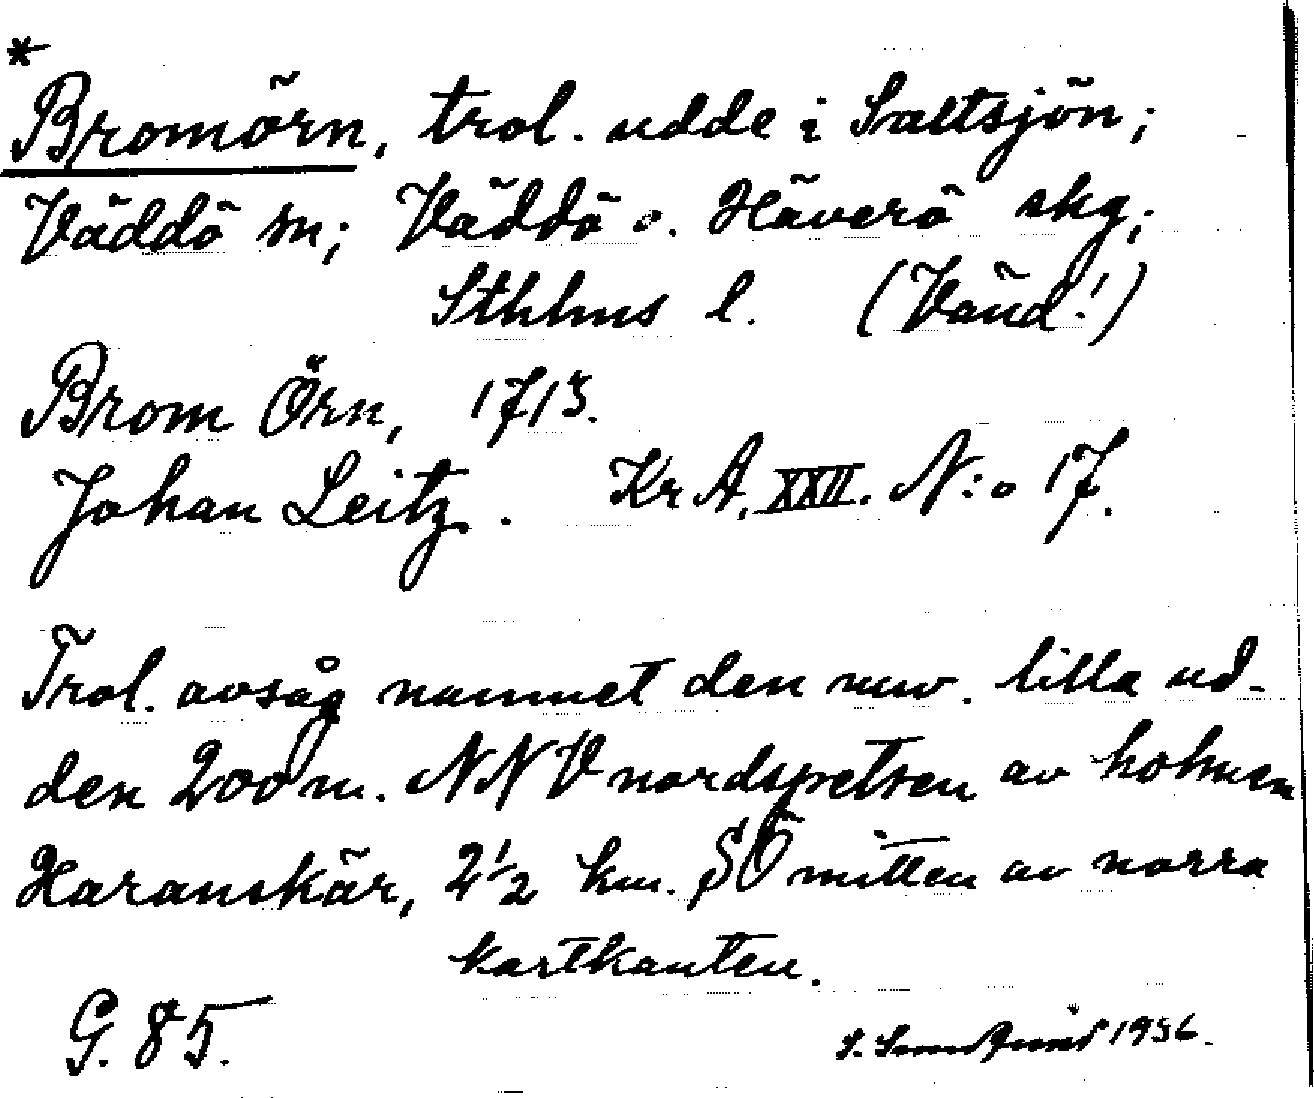 *
Bromörn, trol. udde i Saltsjön;
Väddö sn; Väddö o. Häverö skg;
Sthlms l. (Vänd!)
Brom Örn, 1713.
Johan Leitz. Kr A. XXII. N:o 17.
Trol. avsåg namnet den nuv. lilla ud-
den 200 m. NNV nordspetsen av holmen
Haranskär, 2 1/2 km. SO mitten av norra
kartkanten.
G. 85.
1936.